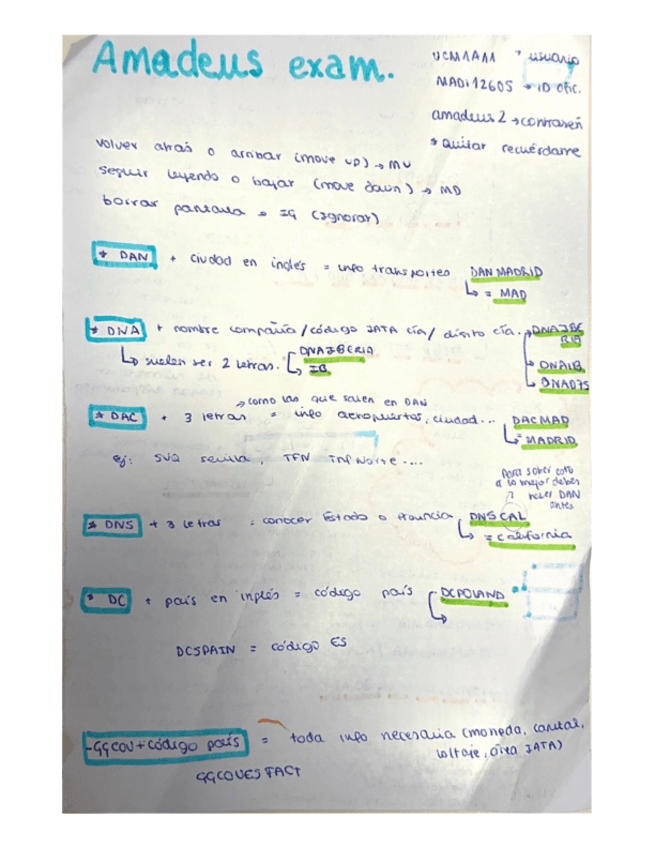 Amadeus exam.
UCM1A11 → usuario
MAD112605 → ID ofic.
amadeus2 → contraseñ
* Quitar recuérdame
volver atrás o arribar (move up) → MU
seguir leyendo o bajar (move down) → MD
borrar pantalla → IG (Ignorar)
* DAN + ciudad en inglés = info transportes DAN MADRID
↳ = MAD
* DNA + nombre compañía / código IATA cía / dígito cía. → DNAIBE
RIA
↳ suelen ser 2 letras. DNAIBERIA
↳ IB
→ DNAIB
↳ DNA075
→ como las que salen en DAN
* DAC + 3 letras = info aeropuertos, ciudad... DACMAD
↳ = MADRID
ej: SVQ sevilla, TFN TNF Norte....
para saber esto
a lo mejor debes
hacer DAN
antes
* DNS + 3 letras = conocer Estado o provincia DNSCAL
↳ = California
* DC + país en inglés = código país DCPOLAND
↳
DCSPAIN = código ES
- GGCOU + código país = toda info necesaria (moneda, capital,
voltaje, área IATA)
GGCOUES FACT